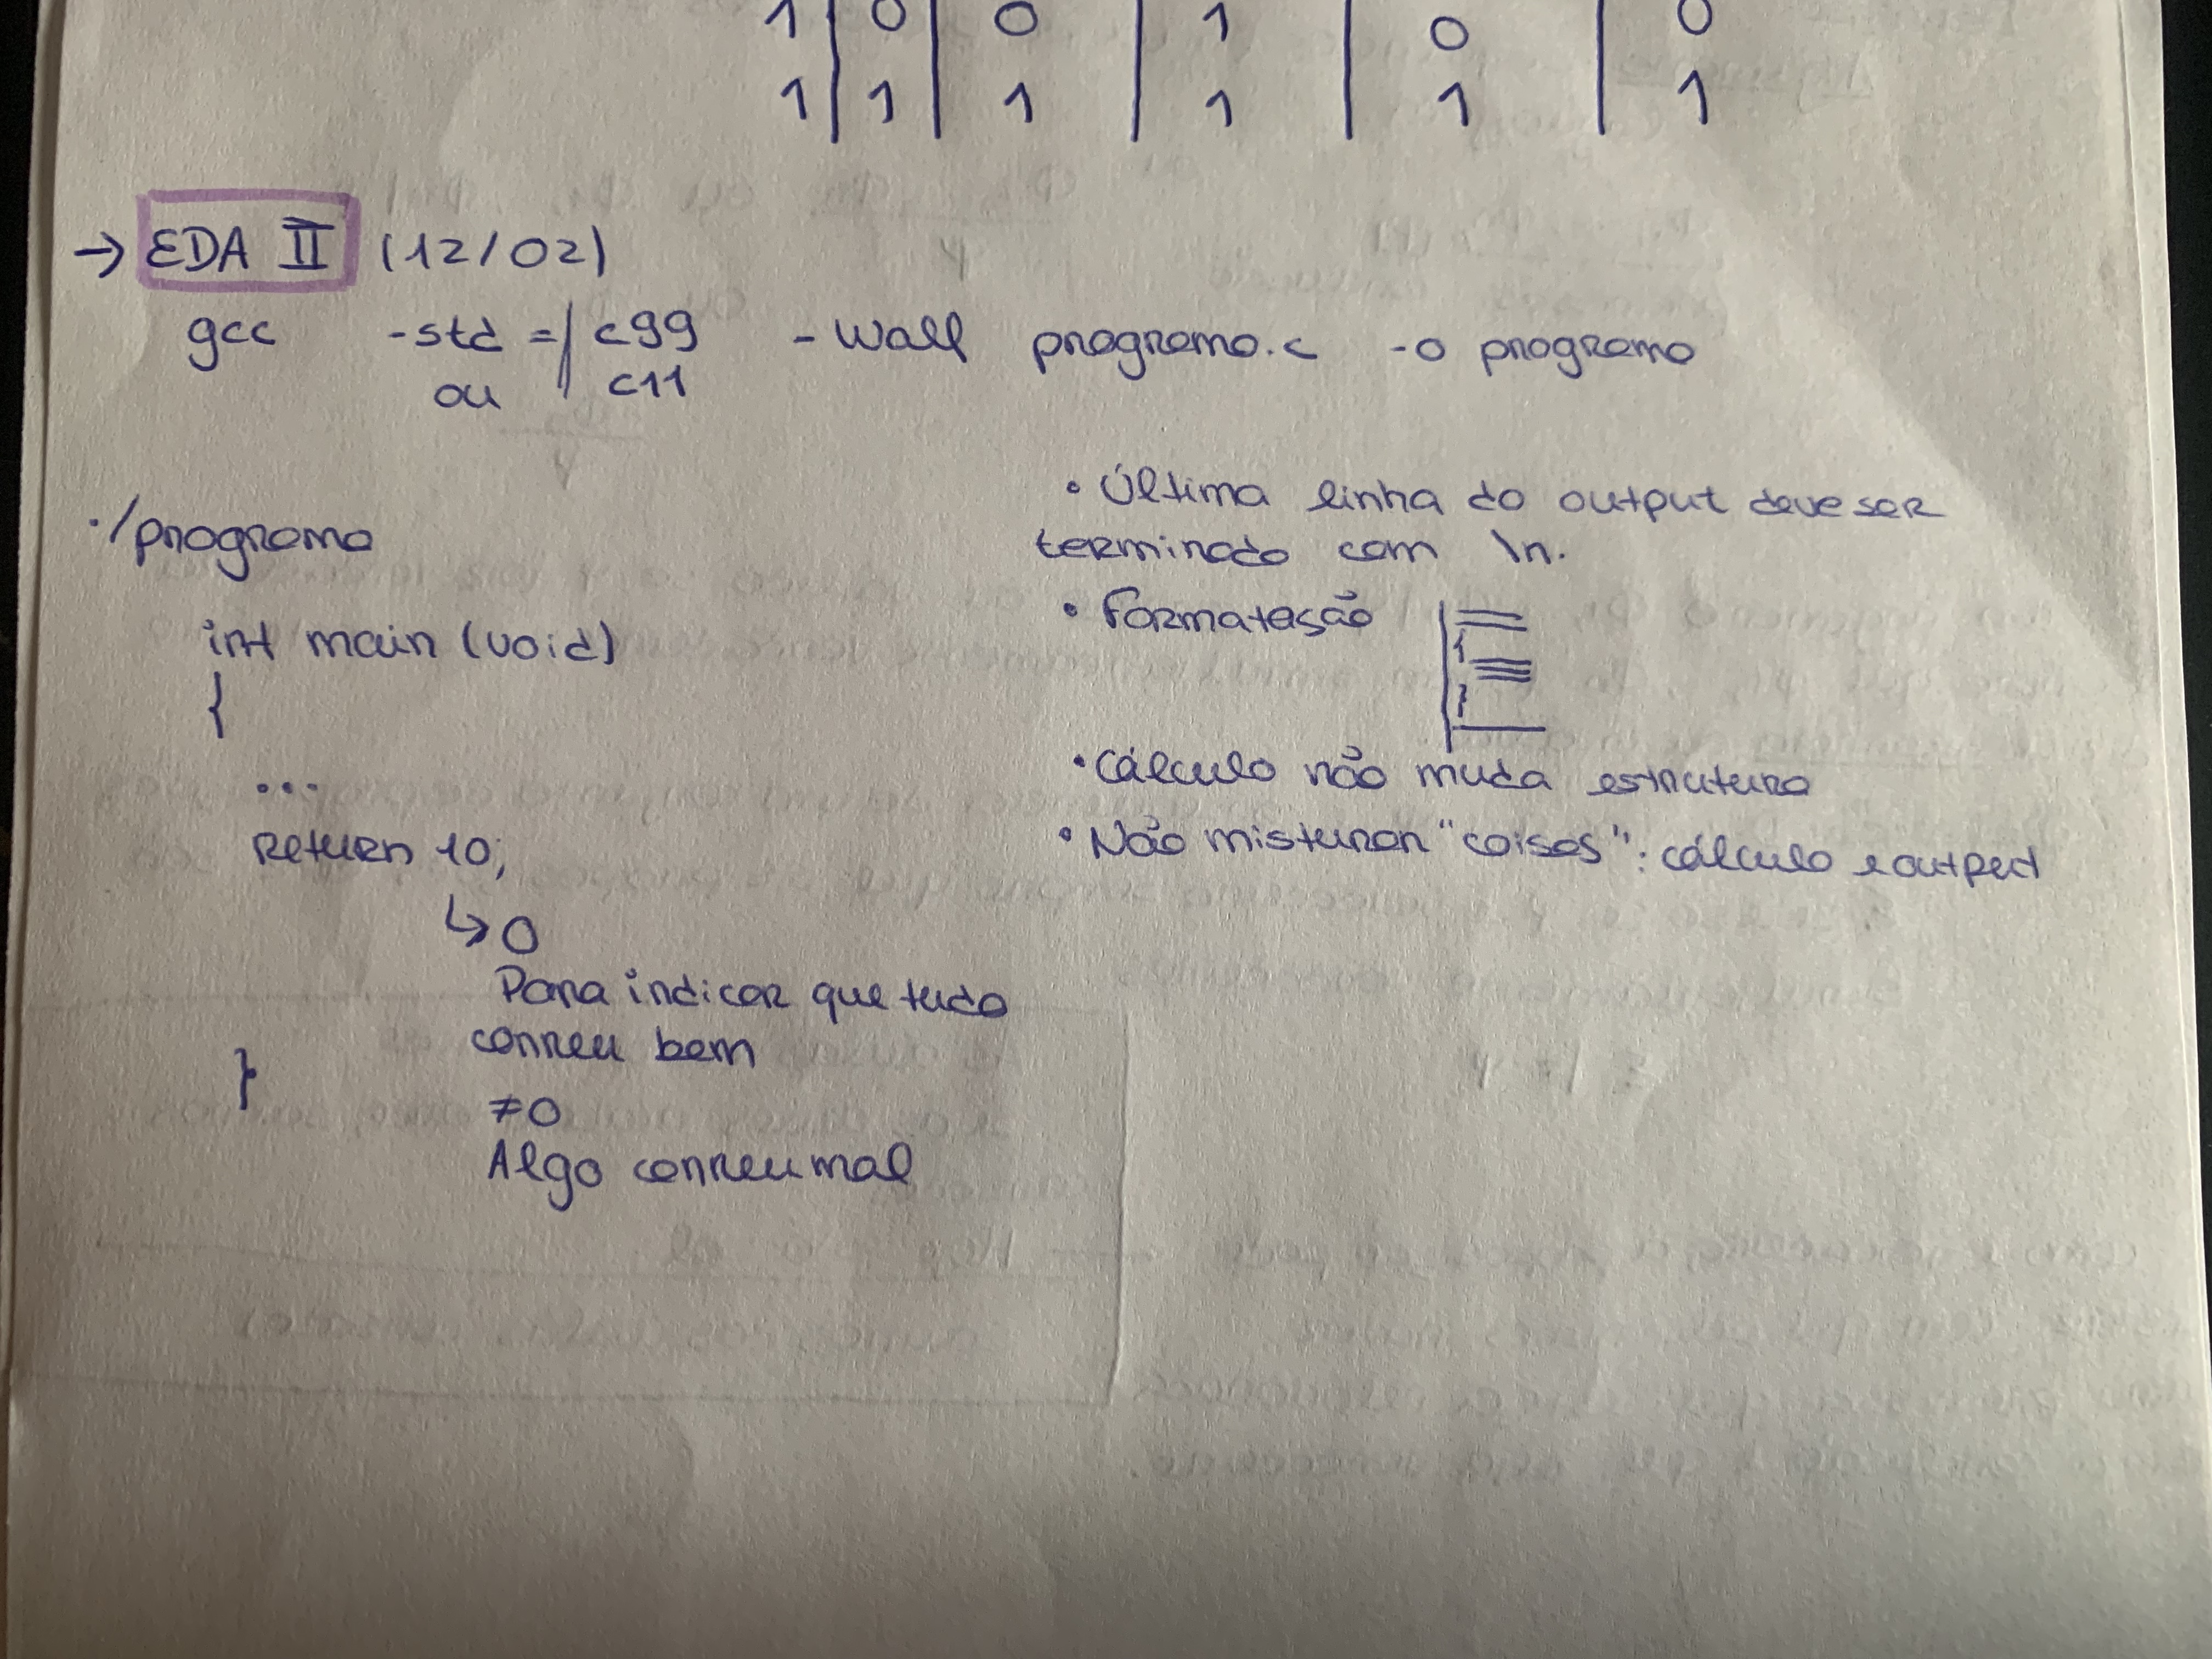 1 | 0 | 0 | 1 | 0 | 0
1 | 1 | 1 | 1 | 1 | 1
→ EDA II (12/02)
gcc -std = | c99 -Wall programa.c -o programa
ou | c11
./programa
int main (void)
{
...
return 10;
↳ 0
Para indicar que tudo
correu bem
≠0
Algo correu mal
}
• Última linha do output deve ser
terminado com \n.
• Formatação
{
}
• Cálculo não muda estrutura
• Não misturar "coisas": cálculo e output